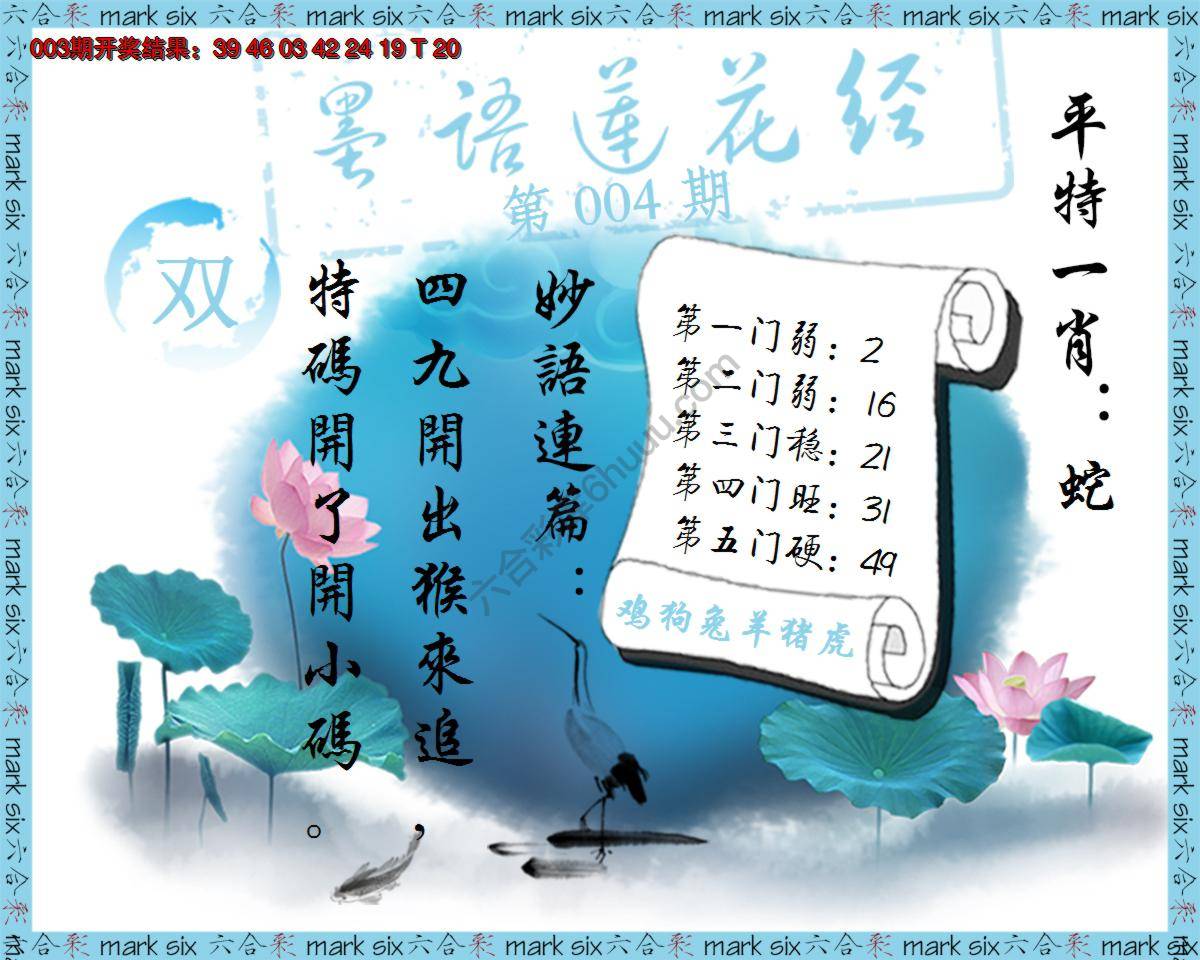 六合彩 mark six 六合彩 mark six 六合彩 mark six 六合彩 mark six 六合彩 mark six 六合彩 mark six
003期开奖结果：39 46 03 42 24 19 T 20
墨語莲花经
第 004 期
双
平特一肖：蛇
妙語連篇：
四九開出猴來追，
特碼開了開小碼。
第一门弱：2
第二门弱：16
第三门稳：21
第四门旺：31
第五门硬：49
鸡狗兔羊猪虎
六合彩 mark six 六合彩 mark six 六合彩 mark six 六合彩 mark six 六合彩 mark six 六合彩 mark six